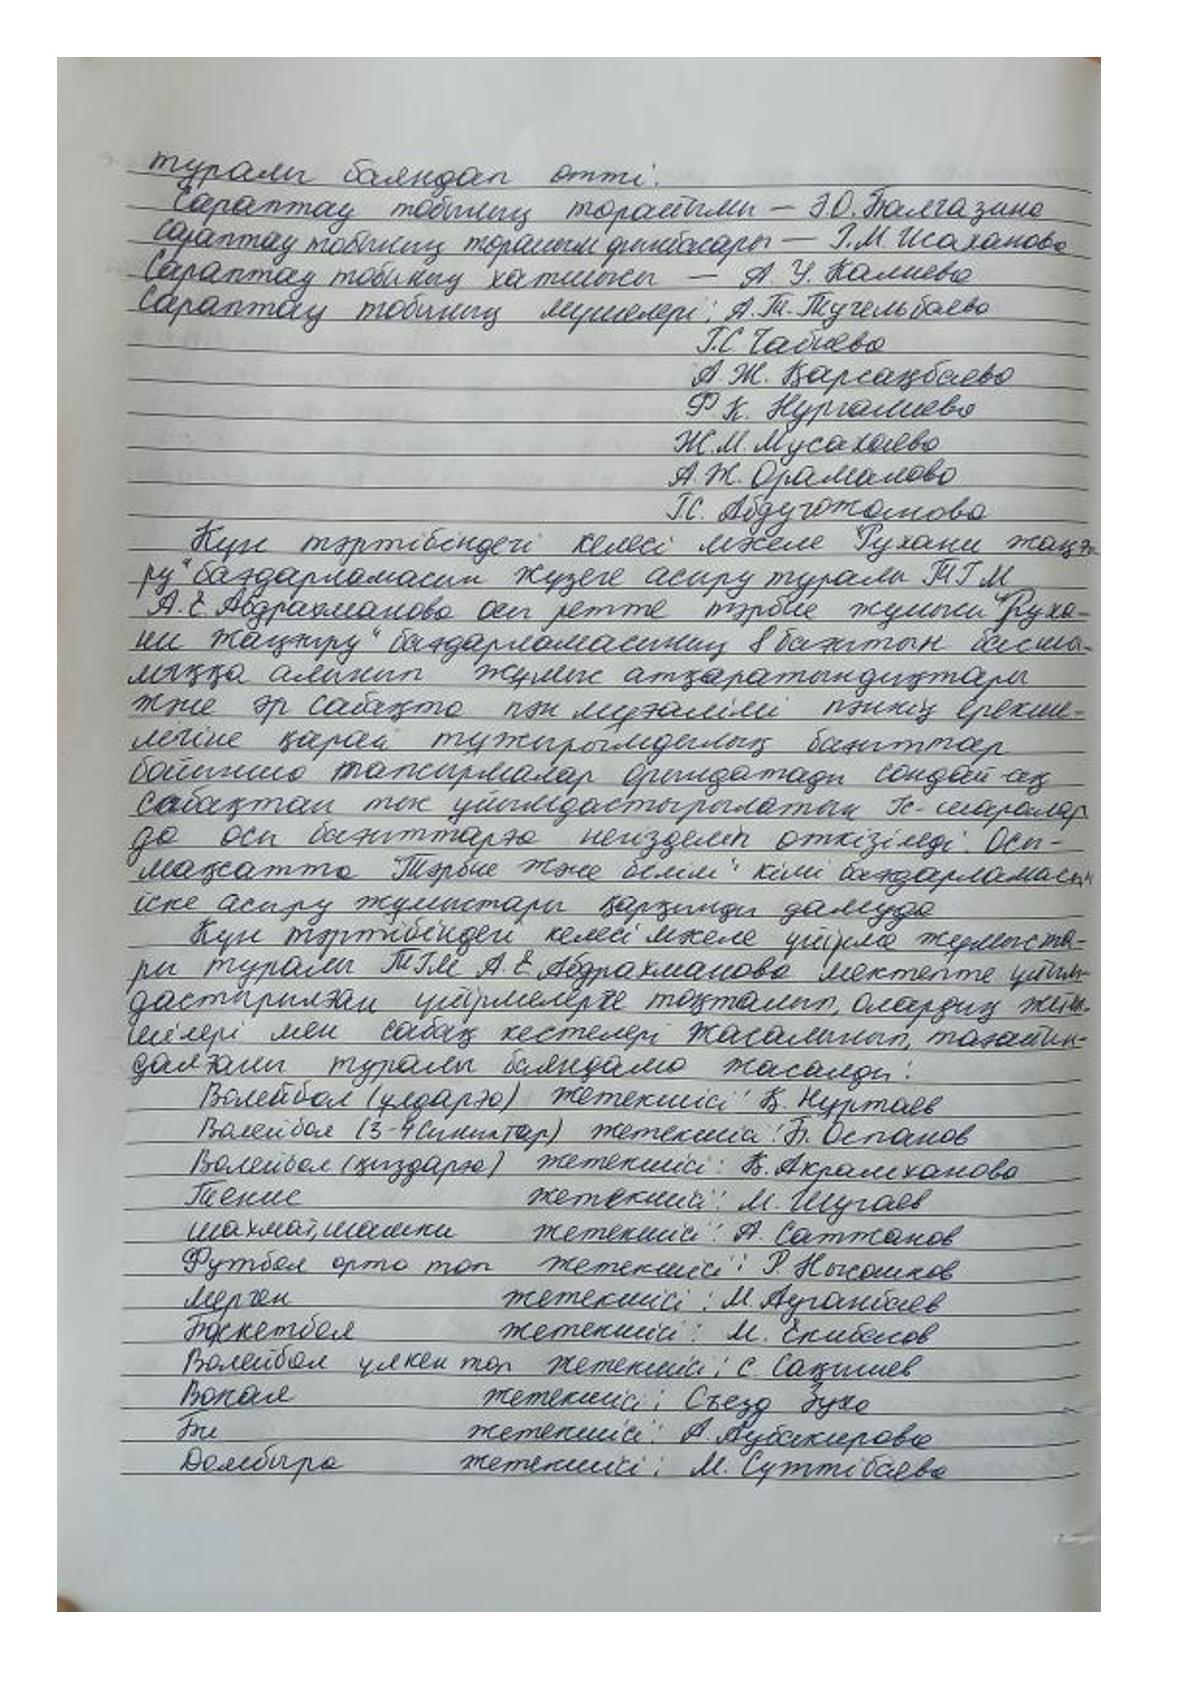 туралы баяндап өтті.
Сараптау тобының төрайымы — Э.О. Балгазина
Сараптау тобының төрайым орынбасары — Г.М. Исаханова
Сараптау тобының хатшысы — А.У. Калиева
Сараптау тобының мүшелері: А.Т. Тучельбаева
Г.С Чабиева
А.Ж. Қарсақбаева
Ф.К. Нургалиева
Ж.М. Мусахаева
А.Ж. Орамалова
Г.С. Абдугожанова
Күн тәртібіндегі келесі мәселе "Рухани жаңғы-
ру" бағдарламасын жүзеге асыру туралы ТІМ
А.Е Абдрахманова осы ретте тәрбие жұмысы "Руха-
ни жаңғыру" бағдарламасының 8 бағытын басшы-
лыққа алынып жұмыс атқаратындықтары
және әр сабақта пән мұғалімі пәннің ерекше-
лігіне қарай тұжырымдылық бағыттар
бойынша тапсырмалар орындатады сондай-ақ
сабақтан тыс ұйымдастырылатын іс-шаралар
да осы бағыттарға негізделіп өткізіледі. Осы-
мақсатта "Тәрбие және білім" кіші бағдарламасын
іске асыру жұмыстары қарқынды дамуда
Күн тәртібіндегі келесі мәселе үйірме жұмыста-
ры туралы ТІМ А.Е Абдрахманова мектепте ұйым-
дастырылған үйірмелерге тоқталып, олардың жетек-
шілері мен сабақ кестелері жасалынып, тағайын-
далғаны туралы баяндама жасалды:
Волейбол (ұлдарға) жетекшісі: Қ. Нұртаев
Волейбол (3-4 сыныптар) жетекшісі: Б. Оспанов
Волейбол (қыздарға) жетекшісі: Қ. Акрамханова
Тенис жетекшісі: М. Шугаев
шахмат, шашки жетекшісі: А. Сатжанов
Футбол орта топ жетекшісі: Р. Нысанков
Мерген жетекшісі: М. Ауганбаев
Баскетбол жетекшісі: М. Екибасов
Волейбол үлкен топ жетекшісі: С. Сақышев
Вокал жетекшісі: Съезд Зуха
Би жетекшісі: А. Аубакирова
Домбыра жетекшісі: М. Сүттібаева